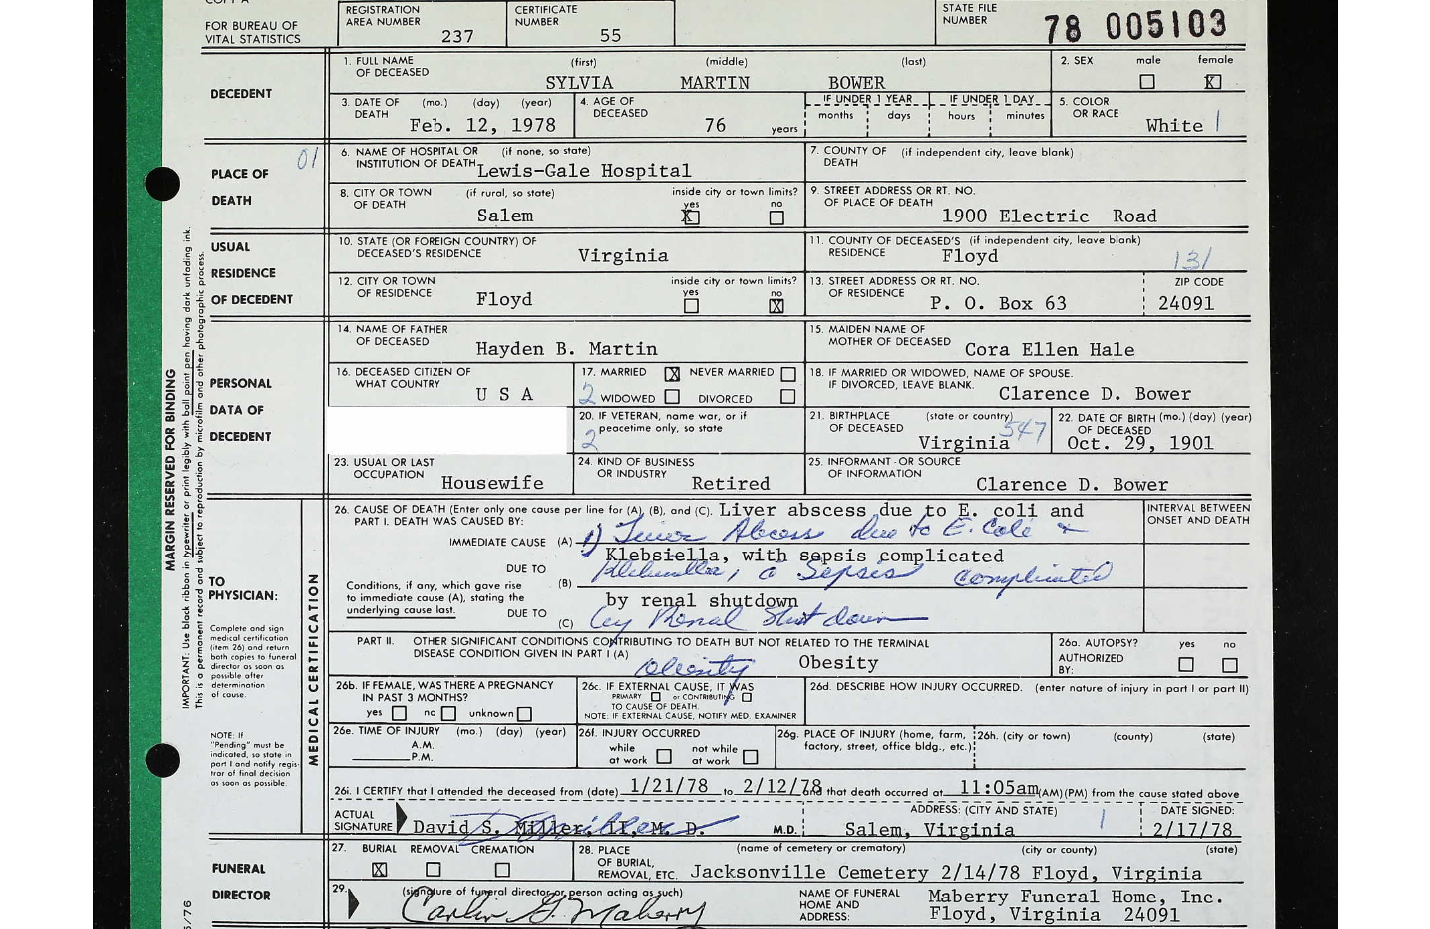 FOR BUREAU OF
VITAL STATISTICS
REGISTRATION
AREA NUMBER 237
CERTIFICATE
NUMBER 55
STATE FILE
NUMBER 78 005103
DECEDENT
1. FULL NAME (first) (middle) (last)
OF DECEASED
SYLVIA MARTIN BOWER
2. SEX male female
X
3. DATE OF (mo.) (day) (year)
DEATH
Feb. 12, 1978
4. AGE OF
DECEASED
76 years
IF UNDER 1 YEAR IF UNDER 1 DAY
months days hours minutes
5. COLOR
OR RACE
White 1
PLACE OF
DEATH
01
6. NAME OF HOSPITAL OR (if none, so state)
INSTITUTION OF DEATH Lewis-Gale Hospital
7. COUNTY OF (if independent city, leave blank)
DEATH
8. CITY OR TOWN (if rural, so state) inside city or town limits?
OF DEATH yes no
Salem X
9. STREET ADDRESS OR RT. NO.
OF PLACE OF DEATH
1900 Electric Road
USUAL
RESIDENCE
OF DECEDENT
10. STATE (OR FOREIGN COUNTRY) OF
DECEASED'S RESIDENCE Virginia
11. COUNTY OF DECEASED'S (if independent city, leave blank)
RESIDENCE Floyd 131
12. CITY OR TOWN inside city or town limits?
OF RESIDENCE yes no
Floyd X
13. STREET ADDRESS OR RT. NO.
OF RESIDENCE P. O. Box 63
ZIP CODE
24091
PERSONAL
DATA OF
DECEDENT
14. NAME OF FATHER
OF DECEASED
Hayden B. Martin
15. MAIDEN NAME OF
MOTHER OF DECEASED Cora Ellen Hale
16. DECEASED CITIZEN OF
WHAT COUNTRY
U S A
17. MARRIED X NEVER MARRIED
2 WIDOWED DIVORCED
18. IF MARRIED OR WIDOWED, NAME OF SPOUSE.
IF DIVORCED, LEAVE BLANK. Clarence D. Bower
20. IF VETERAN, name war, or if
peacetime only, so state
2
21. BIRTHPLACE (state or country)
OF DECEASED
Virginia 547
22. DATE OF BIRTH (mo.) (day) (year)
OF DECEASED
Oct. 29, 1901
23. USUAL OR LAST
OCCUPATION Housewife
24. KIND OF BUSINESS
OR INDUSTRY Retired
25. INFORMANT OR SOURCE
OF INFORMATION Clarence D. Bower
MARGIN RESERVED FOR BINDING
IMPORTANT: Use black ribbon in typewriter or print legibly with ball point pen having dark unfading ink.
This is a permanent record and subject to reproduction by microfilm and other photographic process.
TO
PHYSICIAN:
Complete and sign
medical certification
(item 26) and return
both copies to funeral
director as soon as
possible after
determination
of cause.
NOTE: If
"Pending" must be
indicated, so state in
part I and notify regis-
trar of final decision
as soon as possible.
MEDICAL CERTIFICATION
26. CAUSE OF DEATH (Enter only one cause per line for (A), (B), and (C). Liver abscess due to E. coli and
PART I. DEATH WAS CAUSED BY:
INTERVAL BETWEEN
ONSET AND DEATH
IMMEDIATE CAUSE (A) 1) Liver Abcess due to E. Coli &
Klebsiella, with sepsis complicated
DUE TO
(B) Klebsiella, c Sepsis complicated
Conditions, if any, which gave rise
to immediate cause (A), stating the
underlying cause last.
by renal shutdown
DUE TO
(C) by Renal Shut down
PART II. OTHER SIGNIFICANT CONDITIONS CONTRIBUTING TO DEATH BUT NOT RELATED TO THE TERMINAL
DISEASE CONDITION GIVEN IN PART I (A)
Obesity Obesity
26a. AUTOPSY? yes no
AUTHORIZED
BY:
26b. IF FEMALE, WAS THERE A PREGNANCY
IN PAST 3 MONTHS?
yes no unknown
26c. IF EXTERNAL CAUSE, IT WAS
PRIMARY or CONTRIBUTING
TO CAUSE OF DEATH.
NOTE: IF EXTERNAL CAUSE, NOTIFY MED. EXAMINER
26d. DESCRIBE HOW INJURY OCCURRED. (enter nature of injury in part I or part II)
26e. TIME OF INJURY (mo.) (day) (year)
A.M.
P.M.
26f. INJURY OCCURRED
while not while
at work at work
26g. PLACE OF INJURY (home, farm,
factory, street, office bldg., etc.)
26h. (city or town) (county) (state)
26i. I CERTIFY that I attended the deceased from (date) 1/21/78 to 2/12/78 and that death occurred at 11:05am (AM)(PM) from the cause stated above
ACTUAL
SIGNATURE David S. Miller, II, M. D. M.D.
ADDRESS: (CITY AND STATE)
Salem, Virginia 1
DATE SIGNED:
2/17/78
FUNERAL
DIRECTOR
27. BURIAL REMOVAL CREMATION
X
28. PLACE (name of cemetery or crematory) (city or county) (state)
OF BURIAL,
REMOVAL, ETC. Jacksonville Cemetery 2/14/78 Floyd, Virginia
29. (signature of funeral director or person acting as such)
Carlin G. Maberry
NAME OF FUNERAL
HOME AND
ADDRESS:
Maberry Funeral Home, Inc.
Floyd, Virginia 24091